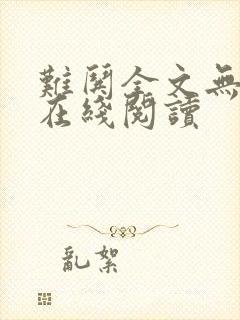 難鬩全文無
在綫閱讀
亂絮